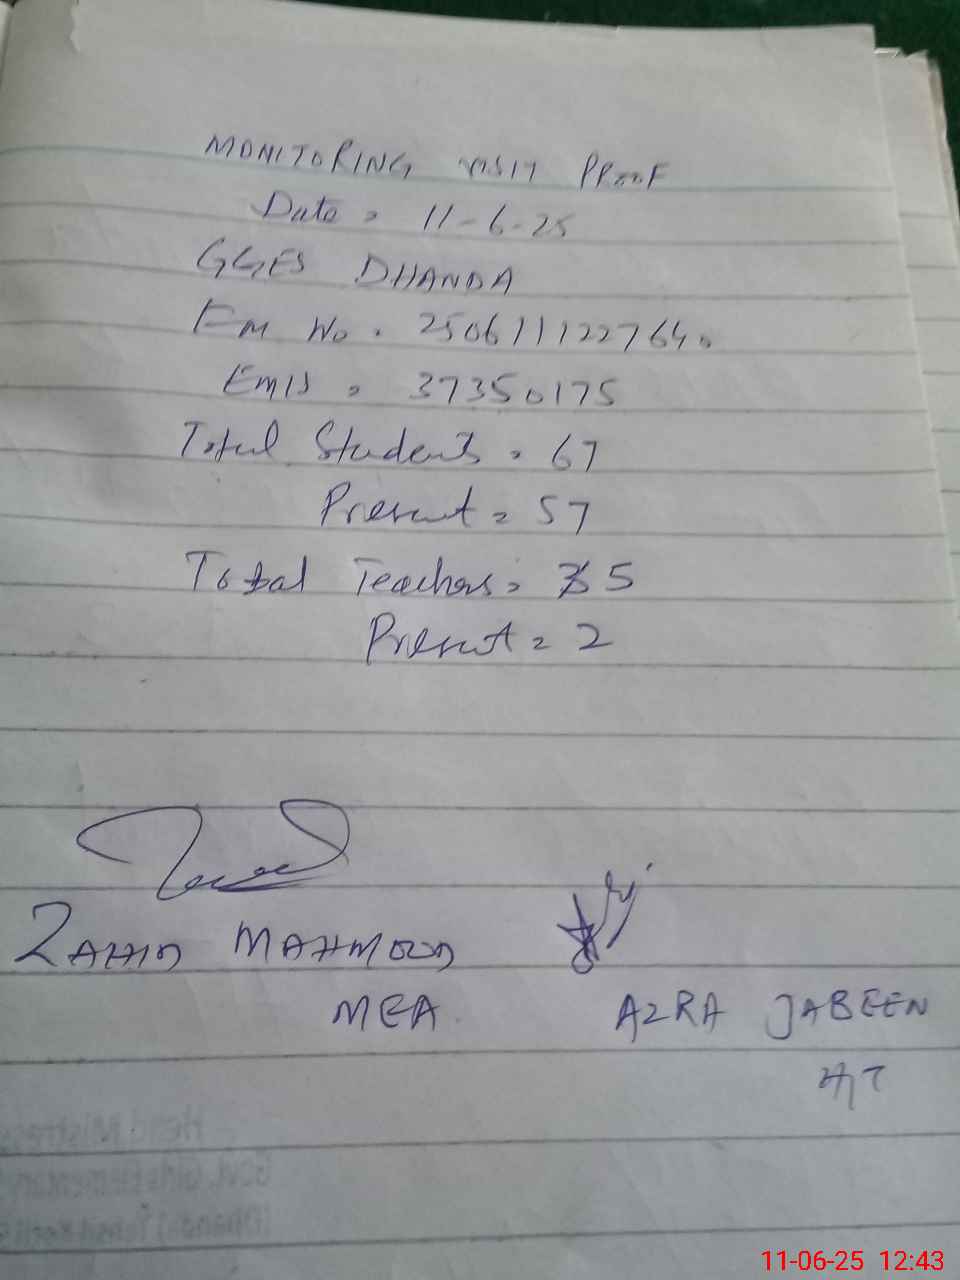 MONITORING VISIT PROOF
Date = 11-6-25
GGES DHANDA
Em No. 2506111227640
EMIS = 37350175
Total Students = 67
Present = 57
Total Teachers = 5
Present = 2
ZAHID MAHMOOD
MEA
AZRA JABEEN
HT
Head Mistress
Govt. Girls Elementary
11-06-25 12:43